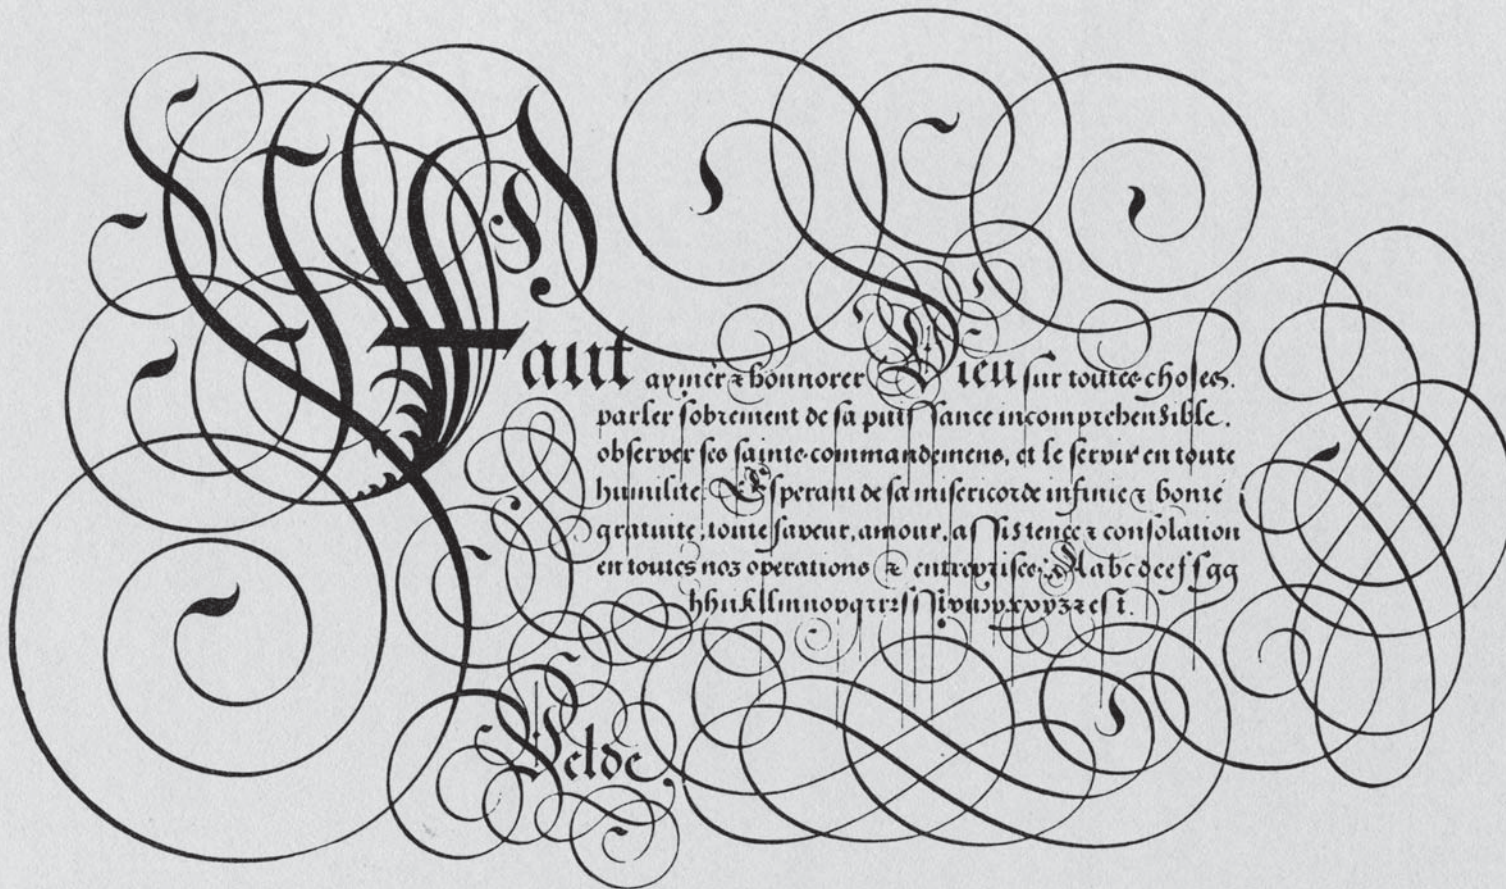 Faut aymer & honnorer Dieu sur toutes choses.
parler sobrement de sa puissance incomprehensible.
observer ses sainte commandemens, et le servir en toute
humilite. Esperant de sa misericorde infinie & bonté
gratuite, toute faveur, amour, assistence & consolation
en toutes noz operations & entreprises. A a b c d e e f f g g
h h i i k l l m n n o p q r r
Velde